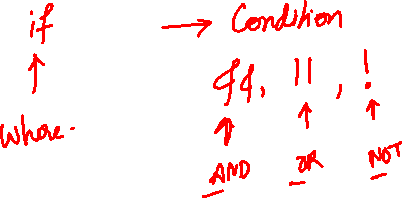 if → Condition
&&, ||, !
where.
AND OR NOT